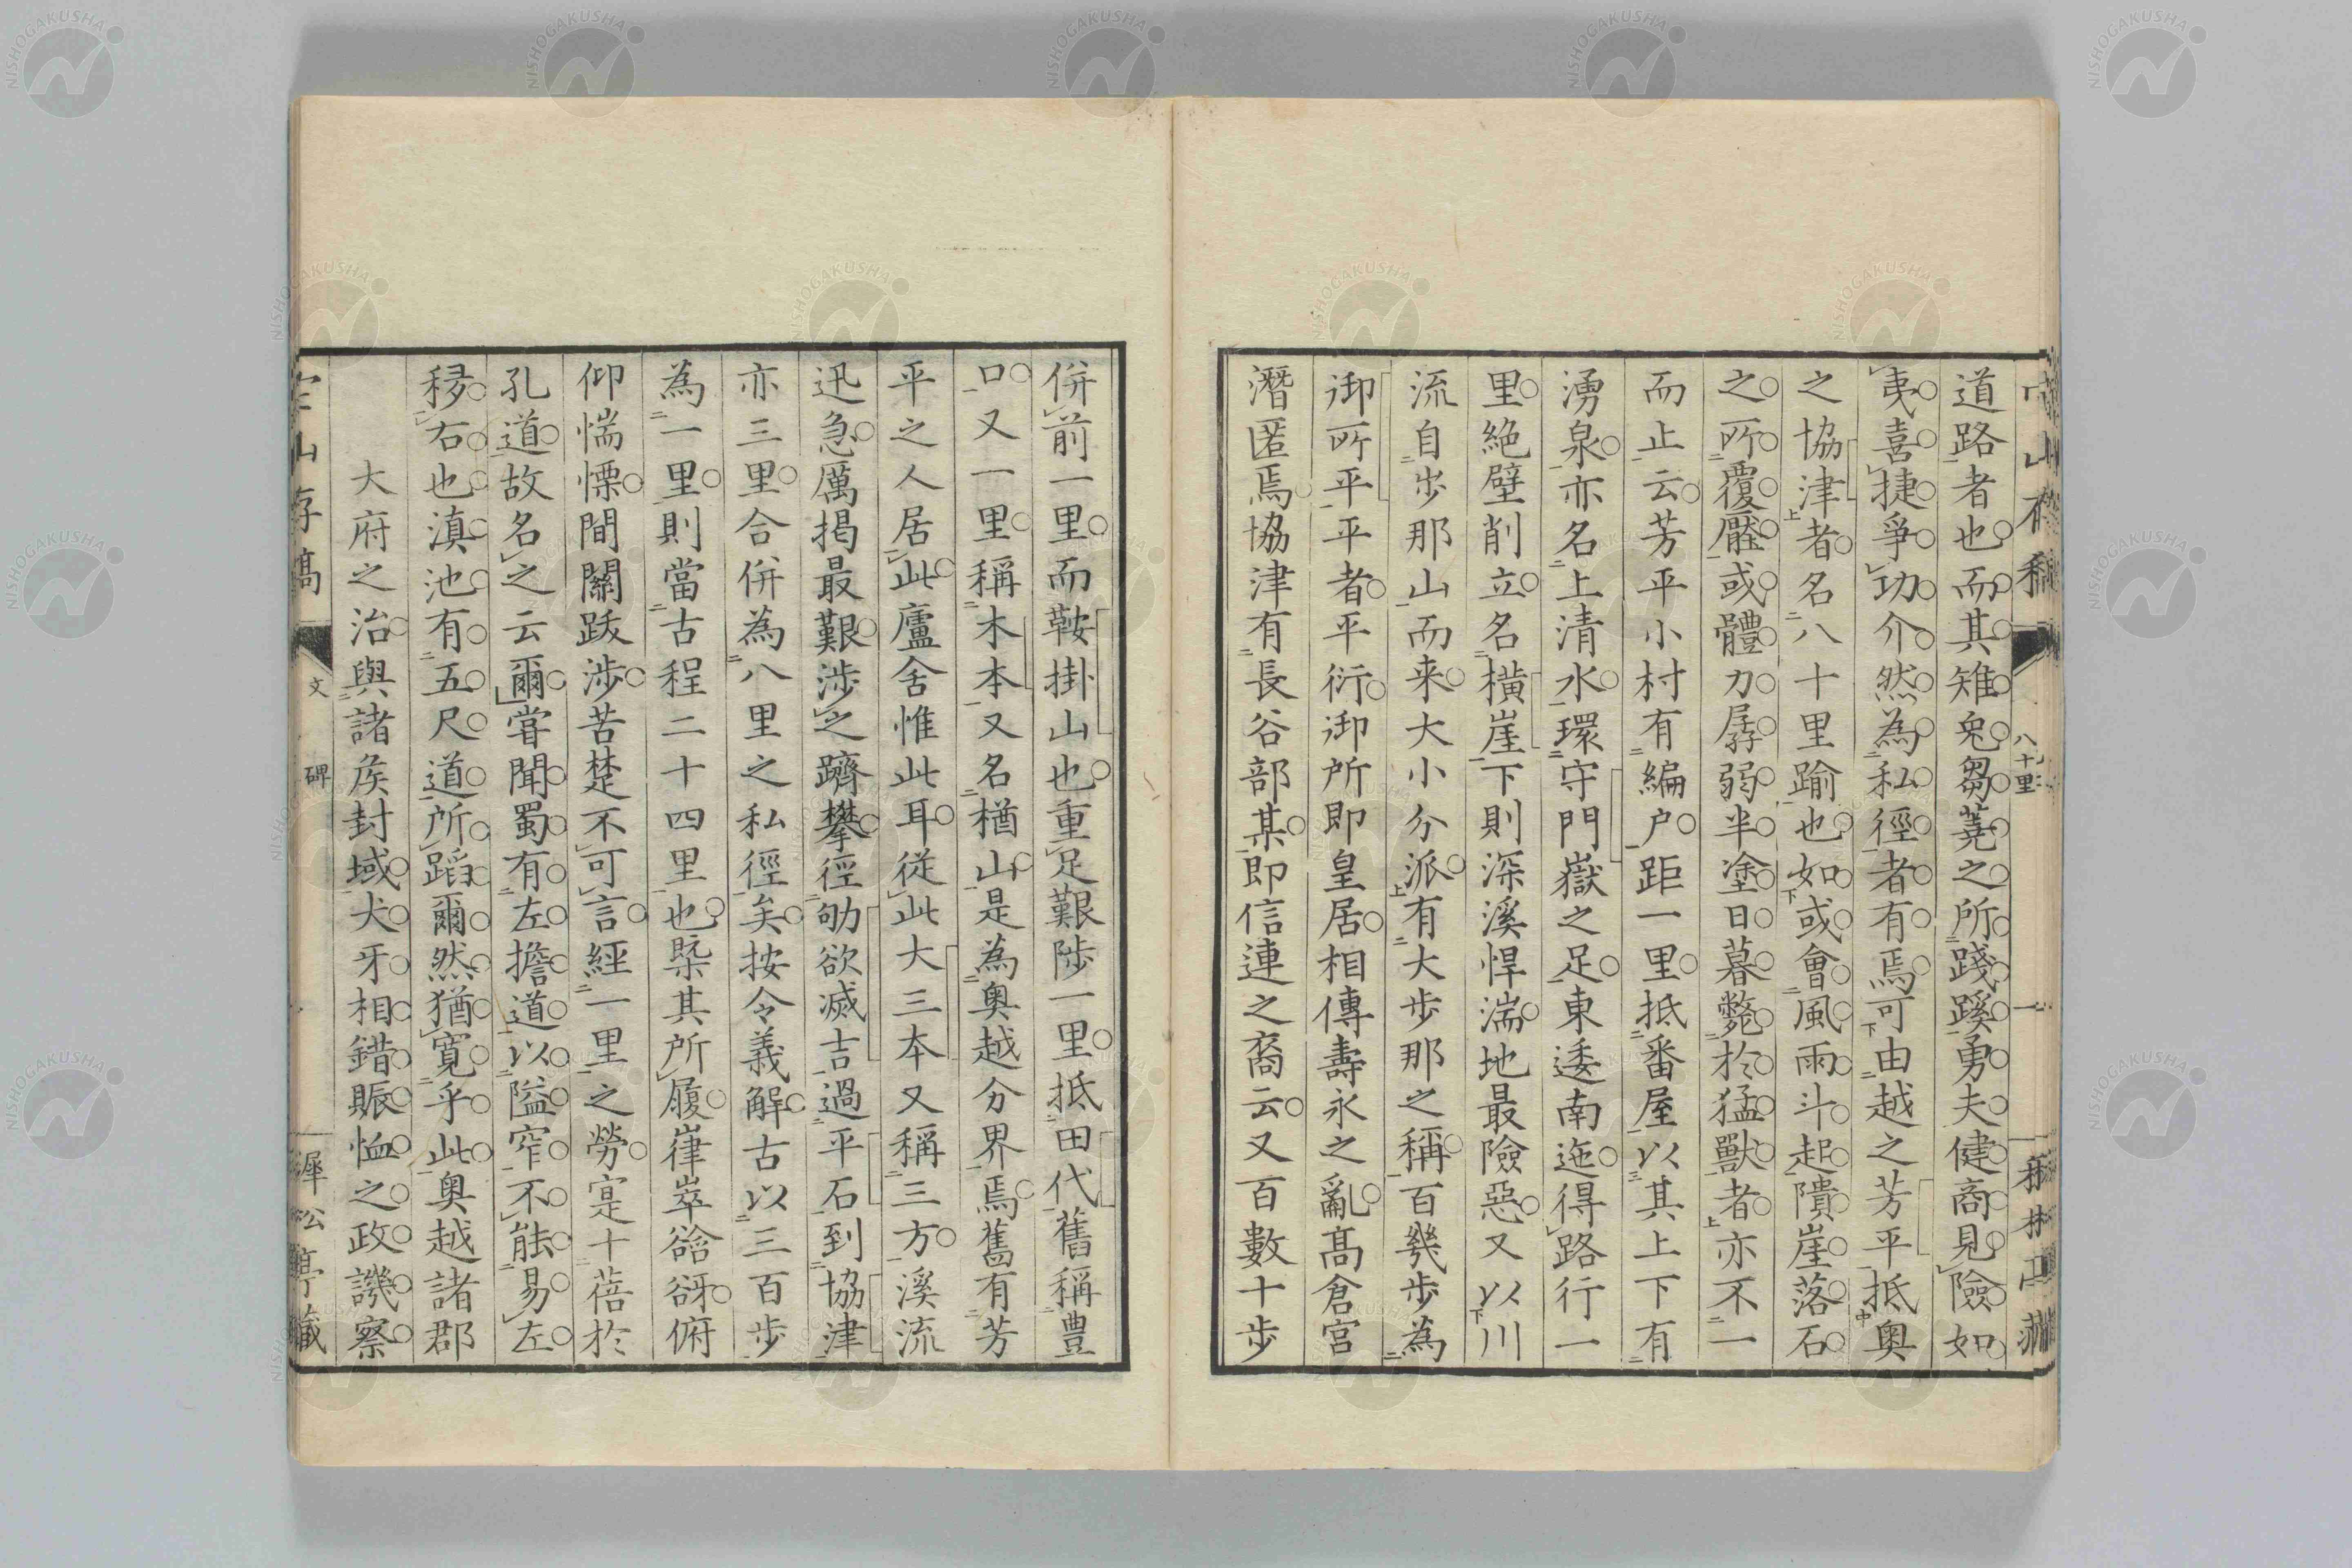 道路者也而其雉兔芻蕘之所踐蹊勇夫健商見險如
夷喜捷爭功介然為私徑者有焉可由越之芳平抵奧
之協津者名八十里踰也如或會風雨斗起隤崖落石
之所覆壓或體力孱弱半塗日暮斃於猛獸者亦不一
而止云芳平小村有編户距一里抵番屋以其上下有
湧泉亦名上清水環守門嶽之足東逶南迤得路行一
里絶壁削立名橫崖下則深溪悍湍地最險惡又以川
流自歩那山而来大小分派有大歩那之稱百幾歩為
御所平平者平衍御所即皇居相傳壽永之亂高倉宮
潛匿焉協津有長谷部某即信連之裔云又百數十歩
併前一里而鞍掛山也重足艱陟一里抵田代舊稱豊
口又一里稱木本又名楢山是為奧越分界焉舊有芳
平之人居此廬舍惟此耳從此大三本又稱三方溪流
迅急厲揭最艱涉之躋攀徑劬欲滅吉過平石到協津
亦三里合併為八里之私徑矣按令義解古以三百歩
為一里則當古程二十四里也槩其所履嵂崒谽谺俯
仰惴慄間關跋涉苦楚不可言經一里之勞寔十蓓於
孔道故名之云爾甞聞蜀有左擔道以隘窄不能易左
移右也滇池有五尺道所蹈爾然猶寬乎此奧越諸郡
大府之治與諸矦封域犬牙相錯賑恤之政譏察
文
碑
八十里
NISHOGAKUSHA